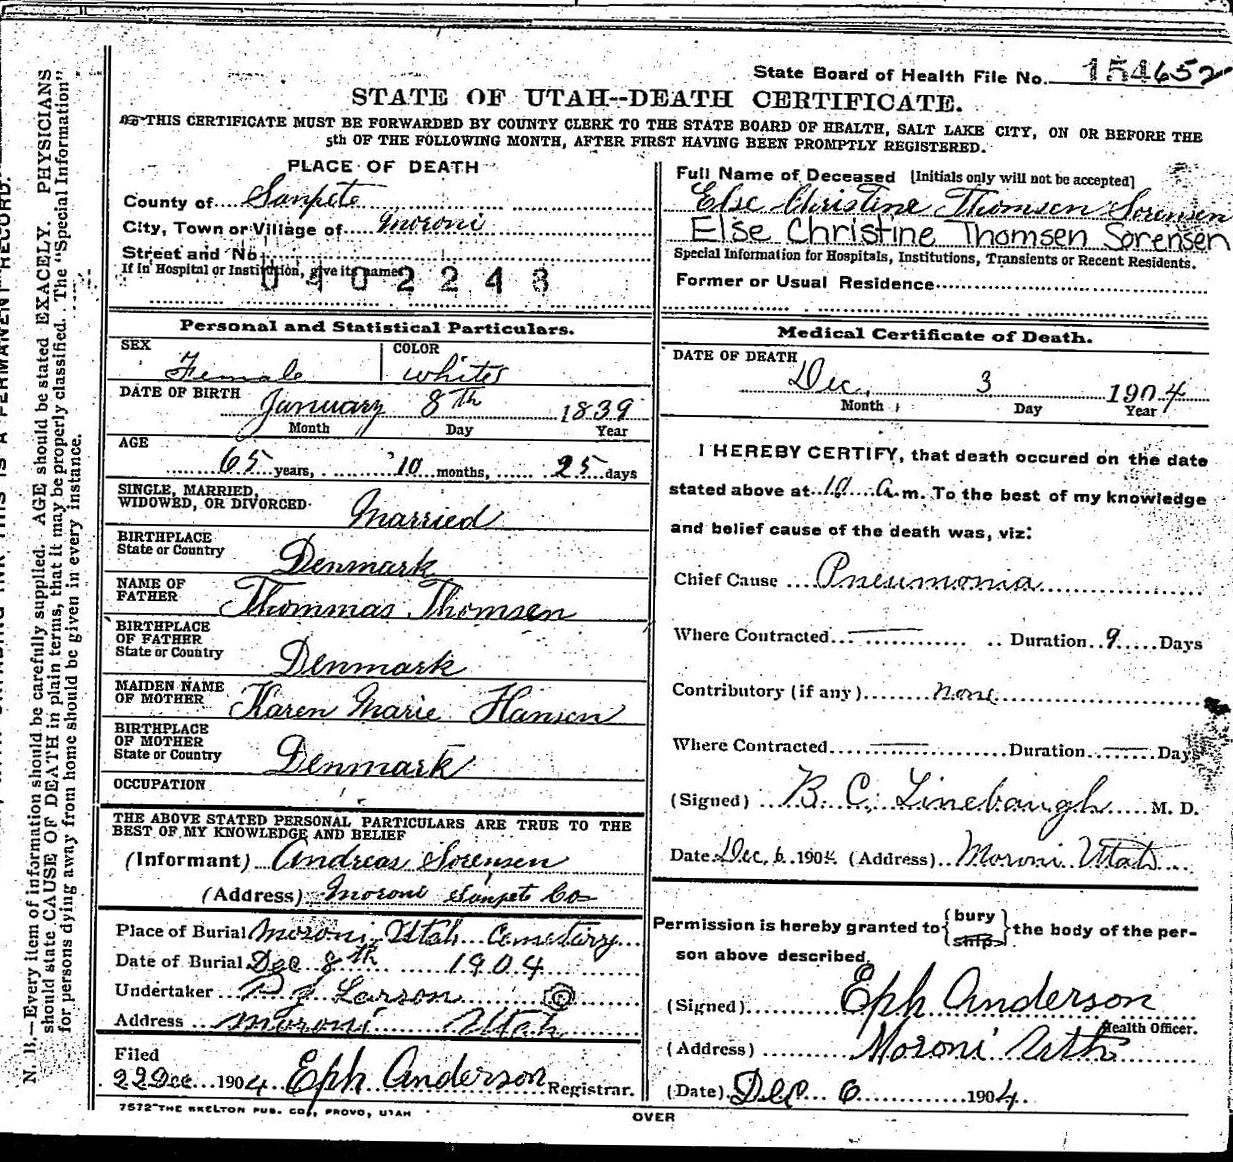 State Board of Health File No. 154652
STATE OF UTAH--DEATH CERTIFICATE.
THIS CERTIFICATE MUST BE FORWARDED BY COUNTY CLERK TO THE STATE BOARD OF HEALTH, SALT LAKE CITY, ON OR BEFORE THE
5th OF THE FOLLOWING MONTH, AFTER FIRST HAVING BEEN PROMPTLY REGISTERED.
PLACE OF DEATH
County of Sanpete
City, Town or Village of Moroni
Street and No.
If in Hospital or Institution, give its name
0402243
Full Name of Deceased [Initials only will not be accepted]
Else Christine Thomsen Sorensen
Else Christine Thomsen Sorensen
Special Information for Hospitals, Institutions, Transients or Recent Residents.
Former or Usual Residence
Personal and Statistical Particulars.
SEX Female COLOR White
DATE OF BIRTH January 8th 1839
Month Day Year
AGE 65 years, 10 months, 25 days
SINGLE, MARRIED,
WIDOWED, OR DIVORCED Married
BIRTHPLACE
State or Country Denmark
NAME OF
FATHER Thommas Thomsen
BIRTHPLACE
OF FATHER
State or Country Denmark
MAIDEN NAME
OF MOTHER Karen Marie Hansen
BIRTHPLACE
OF MOTHER
State or Country Denmark
OCCUPATION
THE ABOVE STATED PERSONAL PARTICULARS ARE TRUE TO THE
BEST OF MY KNOWLEDGE AND BELIEF
(Informant) Andreas Sorensen
(Address) Moroni Sanpete Co
Place of Burial Moroni Utah Cemetarry
Date of Burial Dec 8th 1904
Undertaker Larson
Address Moroni Utah
Filed
22 Dec 1904 Eph Anderson Registrar.
7572 THE SKELTON PUB. CO., PROVO, UTAH
Medical Certificate of Death.
DATE OF DEATH
Dec, 3 1904
Month Day Year
I HEREBY CERTIFY, that death occured on the date
stated above at 10 a.m. To the best of my knowledge
and belief cause of the death was, viz:
Chief Cause Pneumonia
Where Contracted Duration 9 Days
Contributory (if any) none
Where Contracted Duration Days
(Signed) B. C. Linebaugh M. D.
Date Dec, 6 1904 (Address) Moroni Utah
Permission is hereby granted to {bury ship} the body of the per-
son above described
(Signed) Eph Anderson
Health Officer.
(Address) Moroni Utah
(Date) Dec 6 1904.
OVER
N. B.—Every item of information should be carefully supplied. AGE should be stated EXACELY. PHYSICIANS
should state CAUSE OF DEATH in plain terms, that it may be properly classified. The "Special Information"
for persons dying away from home should be given in every instance.
THIS IS A PERMANENT RECORD.